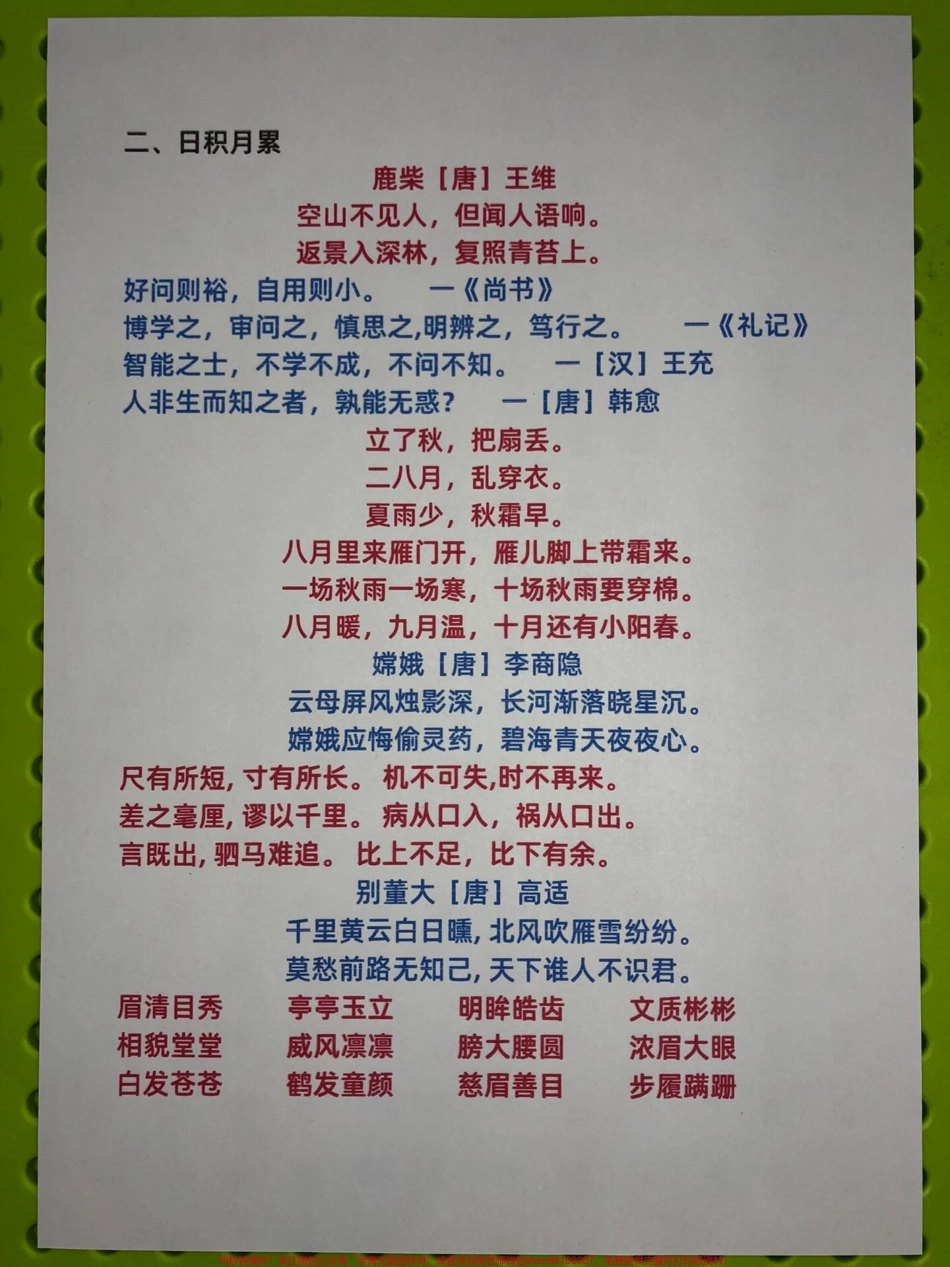 二、日积月累
鹿柴［唐］王维
空山不见人，但闻人语响。
返景入深林，复照青苔上。
好问则裕，自用则小。 一《尚书》
博学之，审问之，慎思之,明辨之，笃行之。 一《礼记》
智能之士，不学不成，不问不知。 一［汉］王充
人非生而知之者，孰能无惑？ 一［唐］韩愈
立了秋，把扇丢。
二八月，乱穿衣。
夏雨少，秋霜早。
八月里来雁门开，雁儿脚上带霜来。
一场秋雨一场寒，十场秋雨要穿棉。
八月暖，九月温，十月还有小阳春。
嫦娥［唐］李商隐
云母屏风烛影深，长河渐落晓星沉。
嫦娥应悔偷灵药，碧海青天夜夜心。
尺有所短, 寸有所长。 机不可失,时不再来。
差之毫厘, 谬以千里。 病从口入，祸从口出。
言既出, 驷马难追。 比上不足，比下有余。
别董大［唐］高适
千里黄云白日曛, 北风吹雁雪纷纷。
莫愁前路无知己, 天下谁人不识君。
眉清目秀 亭亭玉立 明眸皓齿 文质彬彬
相貌堂堂 威风凛凛 膀大腰圆 浓眉大眼
白发苍苍 鹤发童颜 慈眉善目 步履蹒跚